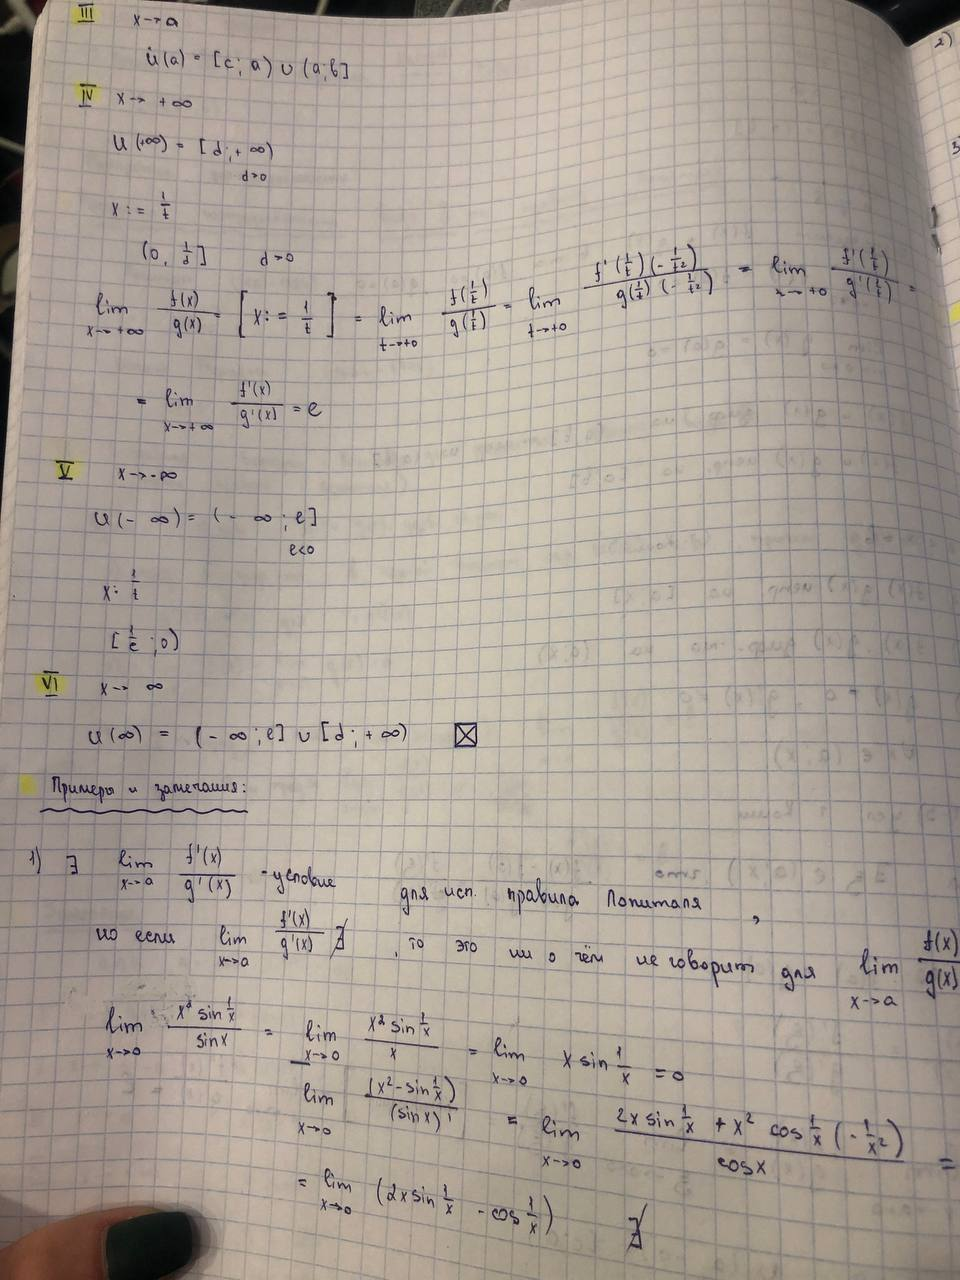 III x→a
U̇(a) = [c; a) ∪ (a; b]
IV x→ +∞
U(+∞) = [d; +∞)
d>0
x := 1/t
(0, 1/d] d>0
lim x→+∞ f(x)/g(x) = [x := 1/t] = lim t→+0 f(1/t)/g(1/t) = lim t→+0 f'(1/t)(-1/t²)/g(1/t)(-1/t²) = lim x→+0 f'(1/t)/g'(1/t) =
= lim x→+∞ f'(x)/g'(x) = e
V x→-∞
U(-∞) = (-∞; e]
e<0
x: 1/t
[1/e; 0)
VI x→ ∞
U(∞) = (-∞; e] ∪ [d; +∞) ☒
Примеры и замечания:
1) ∃ lim x→a f'(x)/g'(x) - условие для исп. правила Лопиталя,
но если lim x→a f'(x)/g'(x) ∄, то это ни о чём не говорит для lim x→a f(x)/g(x)
lim x→0 x² sin 1/x / sin x = lim x→0 x² sin 1/x / x = lim x→0 x sin 1/x = 0
lim x→0 (x² - sin 1/x)'/(sin x)' = lim x→0 2x sin 1/x + x² cos 1/x (-1/x²) / cos x =
= lim x→0 (2x sin 1/x - cos 1/x) ∄
2)
3)